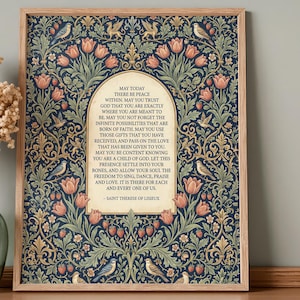 MAY TODAY
THERE BE PEACE
WITHIN. MAY YOU TRUST
GOD THAT YOU ARE EXACTLY
WHERE YOU ARE MEANT TO
BE. MAY YOU NOT FORGET THE
INFINITE POSSIBILITIES THAT ARE
BORN OF FAITH. MAY YOU USE
THOSE GIFTS THAT YOU HAVE
RECEIVED, AND PASS ON THE LOVE
THAT HAS BEEN GIVEN TO YOU.
MAY YOU BE CONTENT KNOWING
YOU ARE A CHILD OF GOD. LET THIS
PRESENCE SETTLE INTO YOUR
BONES, AND ALLOW YOUR SOUL THE
FREEDOM TO SING, DANCE, PRAISE
AND LOVE. IT IS THERE FOR EACH
AND EVERY ONE OF US.
- SAINT THERESE OF LISIEUX